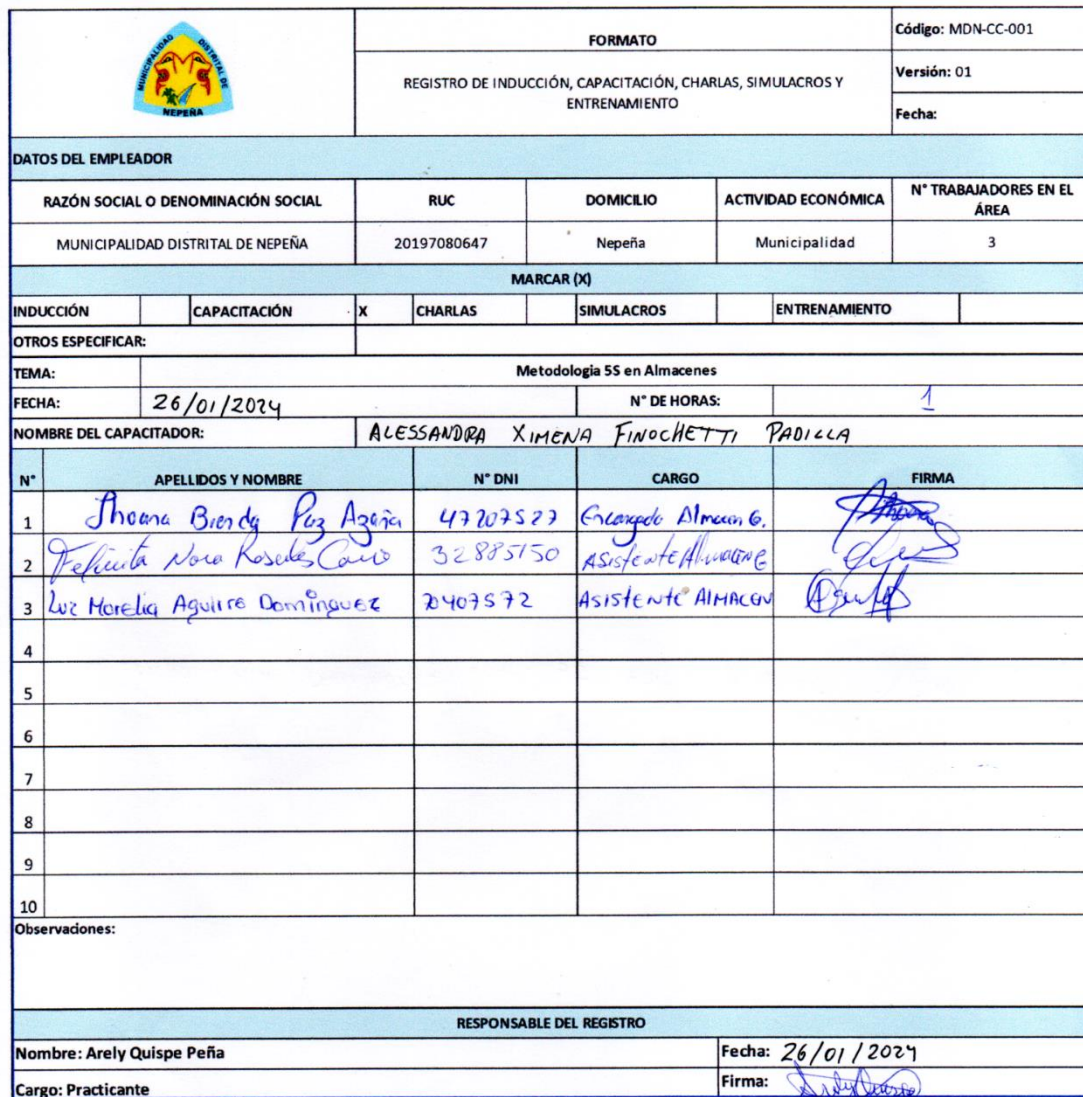 MUNICIPALIDAD DISTRITAL DE NEPEÑA
FORMATO
REGISTRO DE INDUCCIÓN, CAPACITACIÓN, CHARLAS, SIMULACROS Y
ENTRENAMIENTO
Código: MDN-CC-001
Versión: 01
Fecha:
DATOS DEL EMPLEADOR
RAZÓN SOCIAL O DENOMINACIÓN SOCIAL RUC DOMICILIO ACTIVIDAD ECONÓMICA N° TRABAJADORES EN EL ÁREA
MUNICIPALIDAD DISTRITAL DE NEPEÑA 20197080647 Nepeña Municipalidad 3
MARCAR (X)
INDUCCIÓN CAPACITACIÓN X CHARLAS SIMULACROS ENTRENAMIENTO
OTROS ESPECIFICAR:
TEMA: Metodologia 5S en Almacenes
FECHA: 26/01/2024 N° DE HORAS: 1
NOMBRE DEL CAPACITADOR: ALESSANDRA XIMENA FINOCHETTI PADILLA
N° APELLIDOS Y NOMBRE N° DNI CARGO FIRMA
1 Jhoana Brenda Paz Azaña 47207527 Encargada Almacen G.
2 Nora Rosales 32885150 ASistente Almacene
3 Luz Morelia Aguirre Dominguez 70407572 ASISTENTE AlMACEN
4
5
6
7
8
9
10
Observaciones:
RESPONSABLE DEL REGISTRO
Nombre: Arely Quispe Peña Fecha: 26/01/2024
Cargo: Practicante Firma: